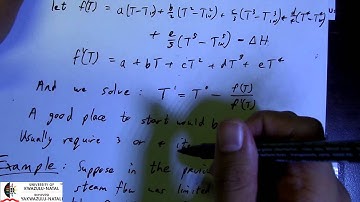 let f(T) = a(T-T_in) + b/2 (T²-T_in²) + c/3 (T³-T_in³) + d/4 (T⁴-T_in⁴)
+ e/5 (T⁵-T_in⁵) - ΔH
f'(T) = a + bT + cT² + dT³ + eT⁴
And we solve: T¹ = T⁰ - f(T)/f'(T)
A good place to start would b
Usually require 3 or 4
Example: Suppose in the
steam flow was limited
UNIVERSITY OF
KWAZULU-NATAL
INYUVESI
YAKWAZULU-NATALI